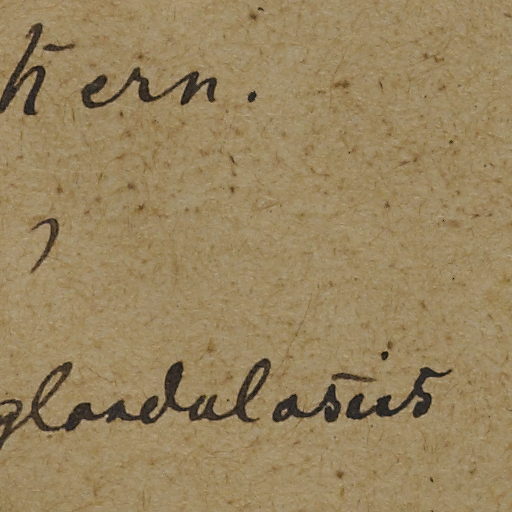 Kern.
)
glandulosus